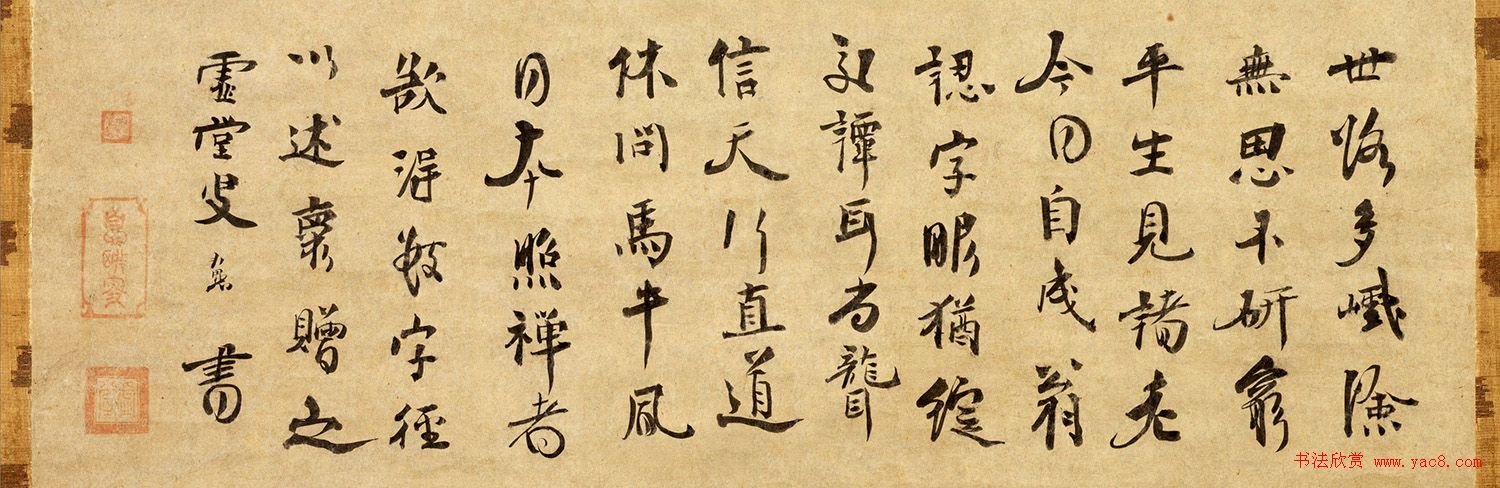 世路多巇險
無思不研窮
平生見諸老
今日自成翁
認字眼猶綻
交譚耳尚聾
信天行直道
休問馬牛風
日本照禅者
欲得數字徑
以述稾贈之
虛堂叟 書
书法欣赏 www.yac8.com